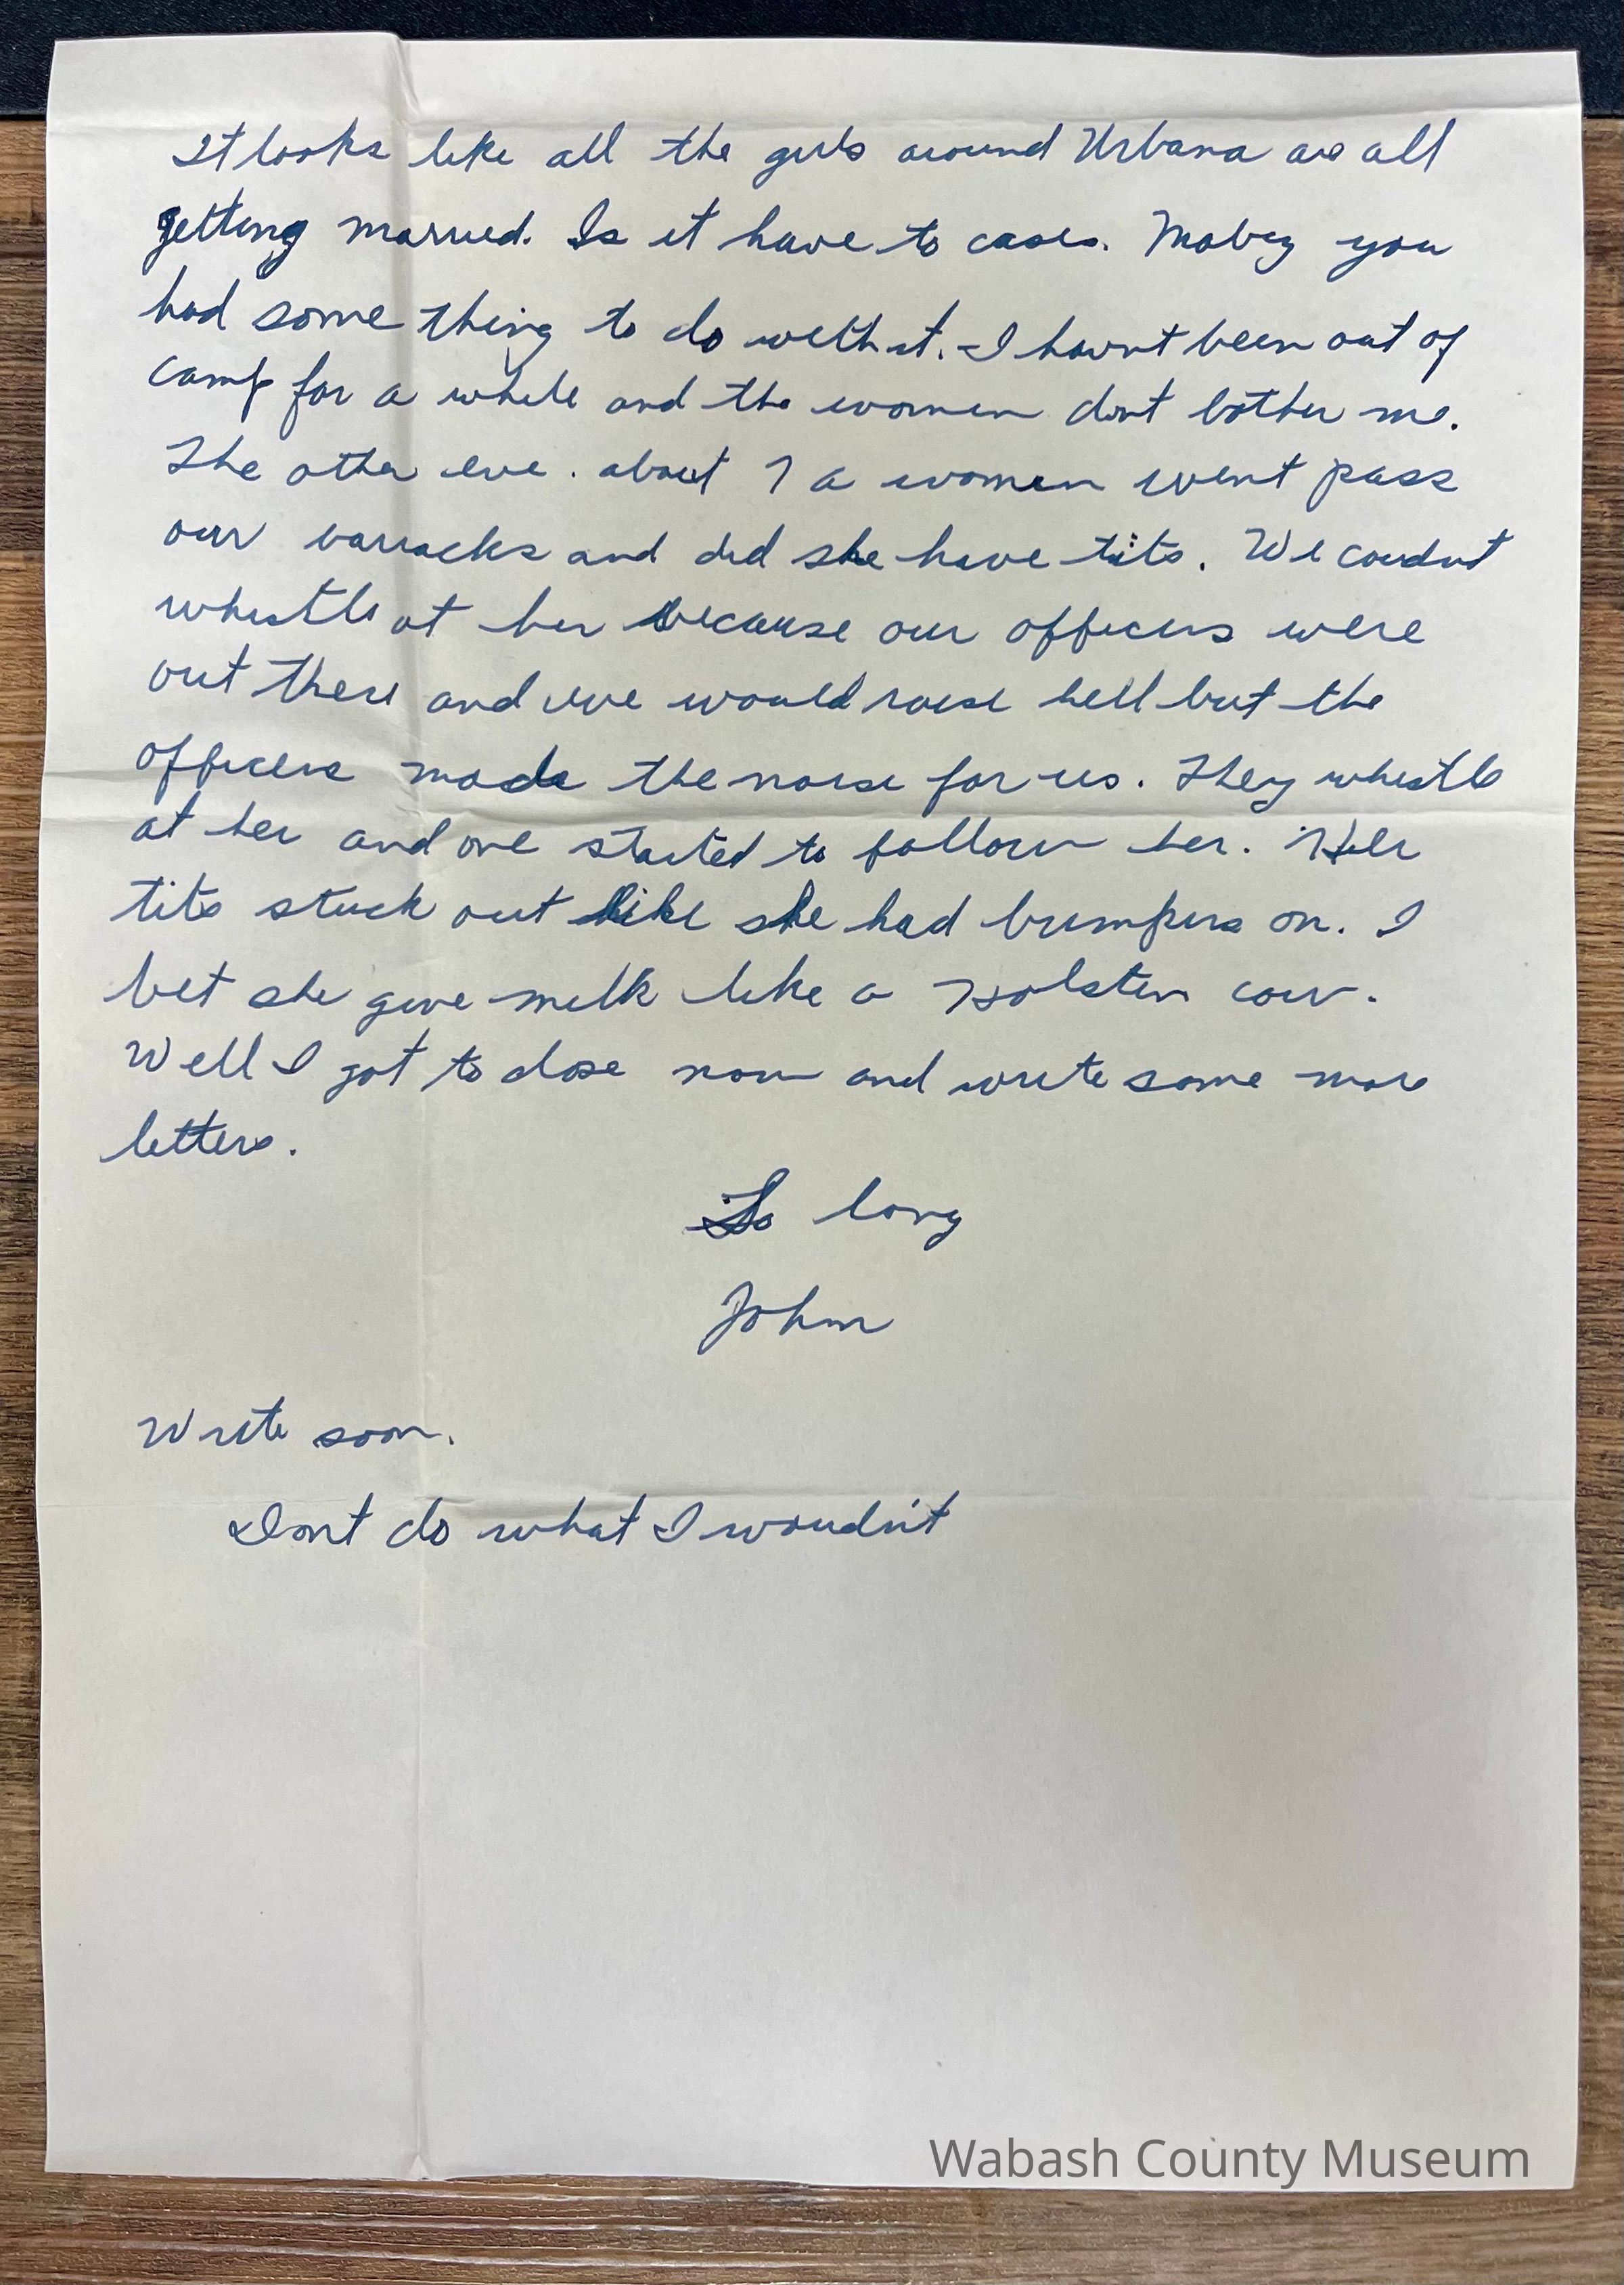 It looks like all the girls around Urbana are all
getting married. Is it have to cases. Mabey you
had some thing to do with it. I havnt been out of
camp for a while and the women dont bother me.
The other eve. about 7 a women went pass
our barracks and did she have tits. We coudnt
whistle at her because our officers were
out there and we would raise hell but the
officers made the noise for us. They whistle
at her and one started to follow her. Her
tits stuck out like she had bumpers on. I
bet she give milk like a Holsten cow.
Well I got to close now and write some more
letters.
So long
John
Write soon.
Dont do what I woudn't
Wabash County Museum